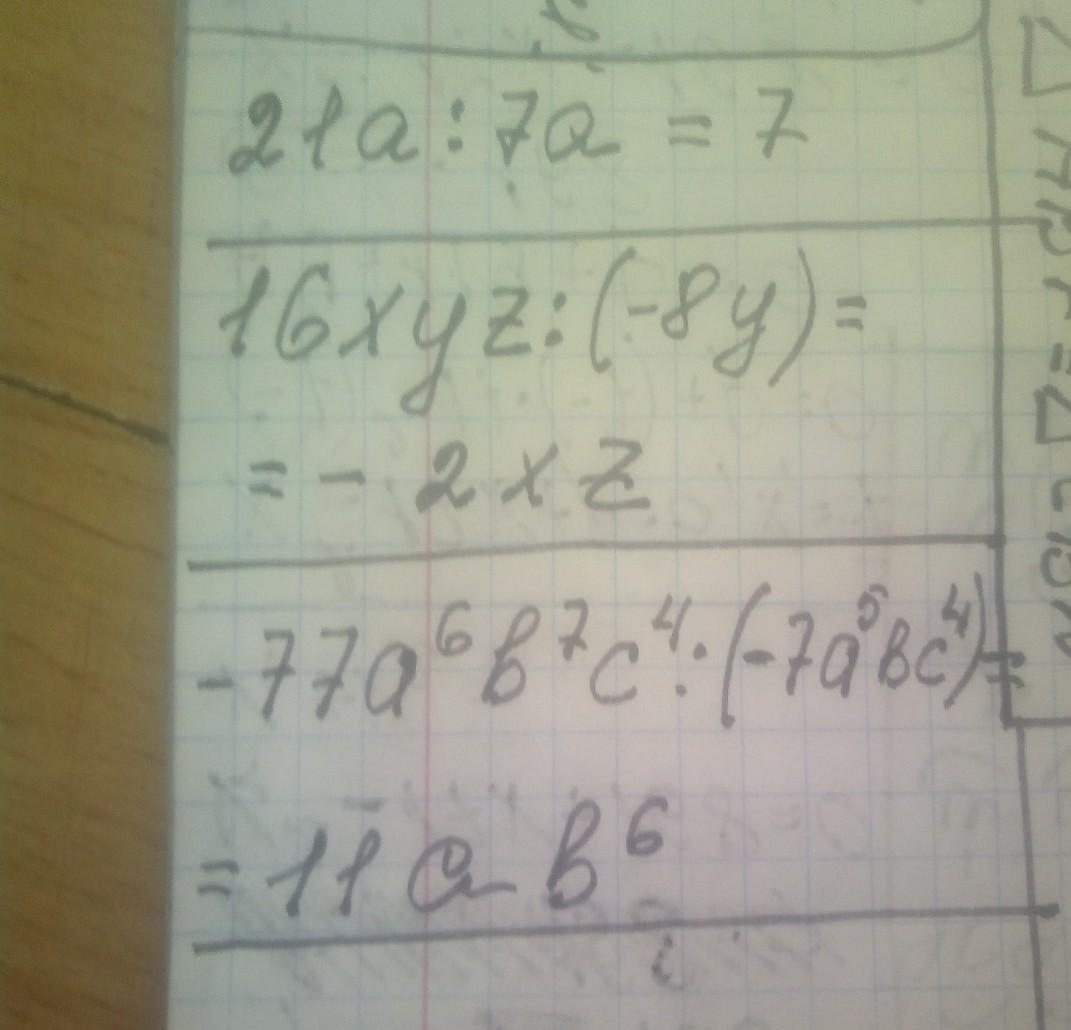 21a : 7a = 7
16xyz : (-8y) =
= - 2xz
-77a⁶b⁷c⁴ : (-7a⁵bc⁴) =
= 11ab⁶